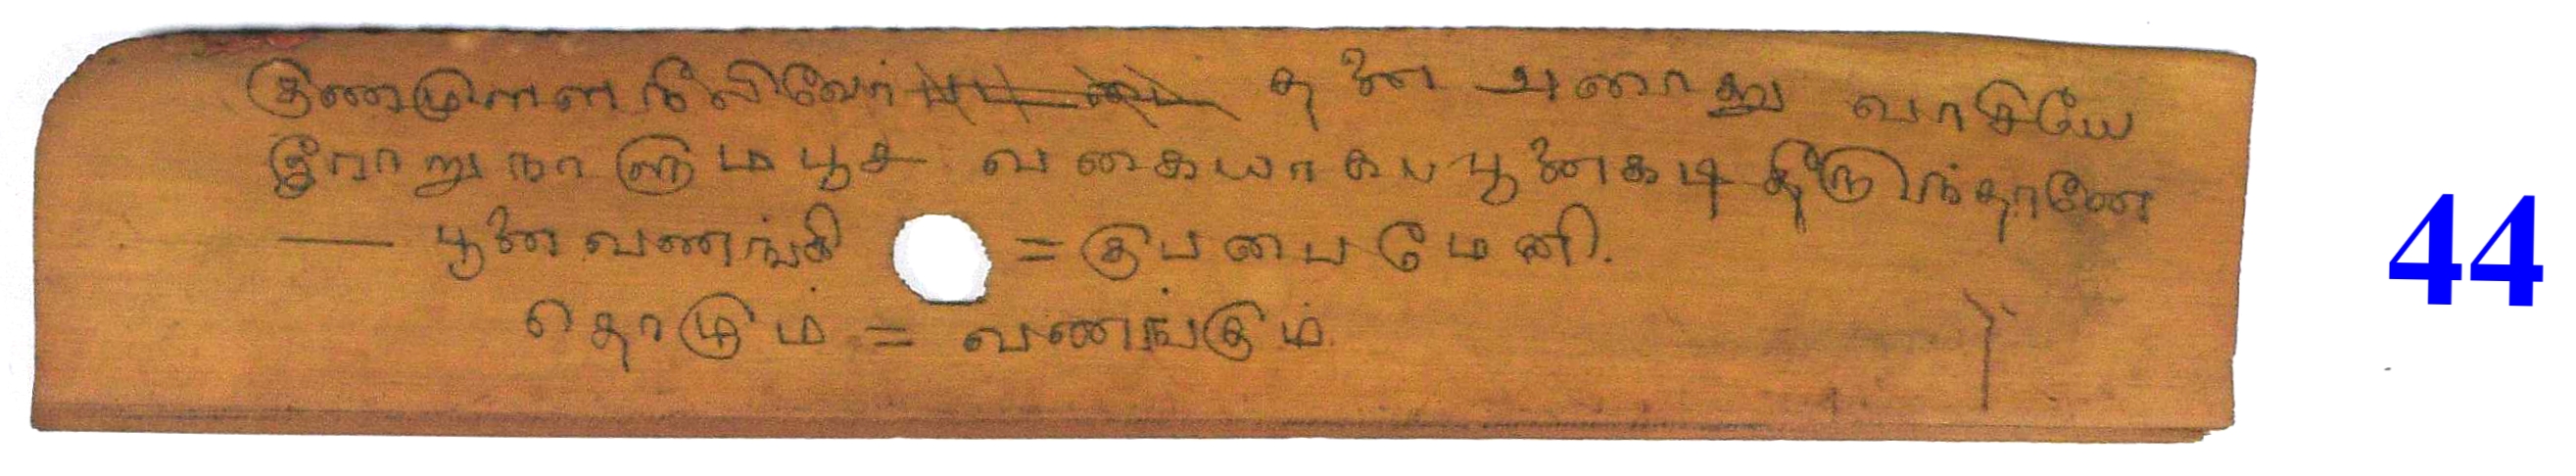 குணமுளள நீலிவேர் தனை அனாது வாசியே
இராறுநாளும பூச வகையாகப பூனைகடி தீருமந்தாணே
— பூனைவணங்கி = குபபைமேனி.
தொழும் = வணங்கும்
44